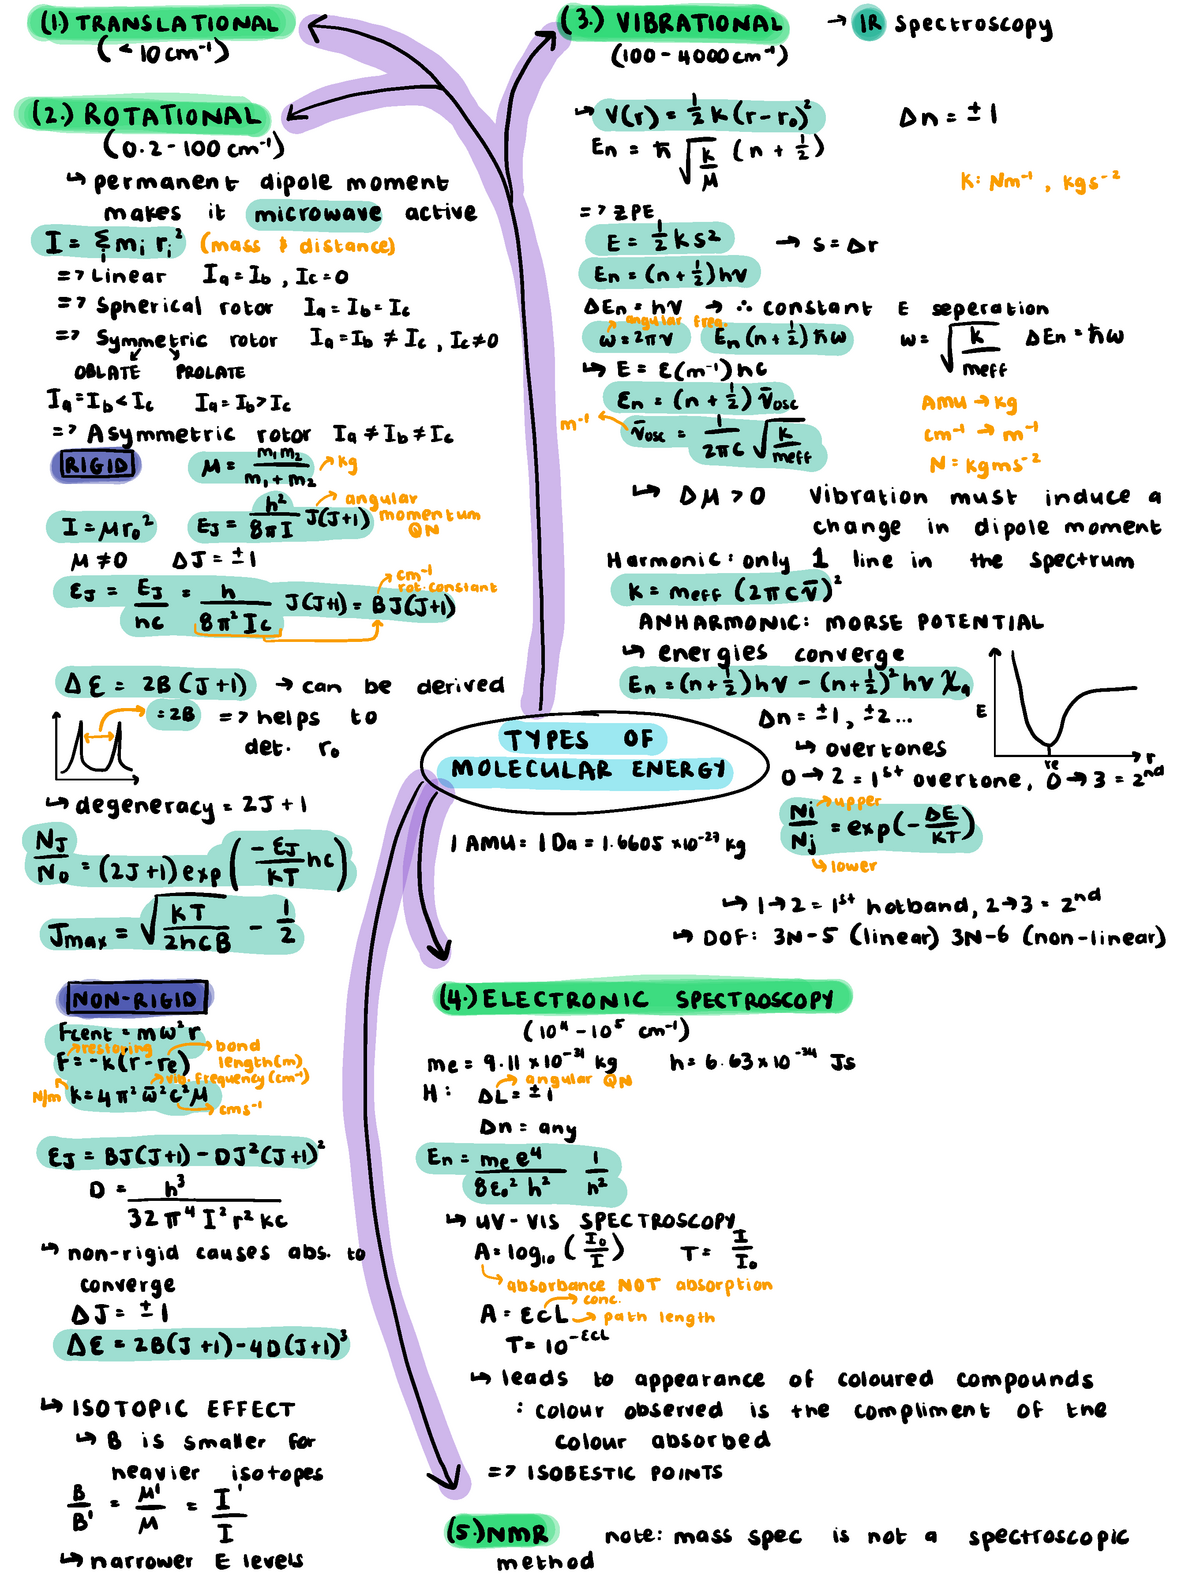 (1.) TRANSLATIONAL
(< 10 cm⁻¹)
(2.) ROTATIONAL
(0.2 - 100 cm⁻¹)
↳ permanent dipole moment
makes it microwave active
I = Σᵢ mᵢ rᵢ² (mass & distance)
=> Linear Ia = Ib , Ic = 0
=> Spherical rotor Ia = Ib = Ic
=> Symmetric rotor Ia = Ib ≠ Ic , Ic ≠ 0
OBLATE PROLATE
Ia = Ib < Ic Ia = Ib > Ic
=> Asymmetric rotor Ia ≠ Ib ≠ Ic
RIGID μ = m₁m₂ / m₁ + m₂ → kg
I = μr₀² EJ = h² / 8πI J(J+1) → angular momentum QN
μ ≠ 0 ΔJ = ±1
εJ = EJ / hc = h / 8π²Ic J(J+1) = BJ(J+1)
cm⁻¹ rot. constant
Δε = 2B(J+1) → can be derived
= 2B => helps to
det. r₀
↳ degeneracy = 2J+1
NJ / N₀ = (2J+1) exp(-εJ / kT hc)
Jmax = √(kT / 2hcB) - 1/2
NON-RIGID
Fcent = mω²r
restoring
F = -k(r - re) → bond length (m)
vib. frequency (cm⁻¹)
N/m k = 4π² ω̄² c² μ → cms⁻¹
εJ = BJ(J+1) - DJ²(J+1)²
D = h³ / 32π⁴ I² r² kc
↳ non-rigid causes abs. to
converge
ΔJ = ±1
Δε = 2B(J+1) - 4D(J+1)³
↳ ISOTOPIC EFFECT
↳ B is smaller for
heavier isotopes
B / B' = μ' / μ = I' / I
↳ narrower E levels
(3.) VIBRATIONAL → IR Spectroscopy
(100 - 4000 cm⁻¹)
↳ V(r) = 1/2 k (r - r₀)² Δn = ±1
En = ħ √(k / μ) (n + 1/2)
k: Nm⁻¹ , kgs⁻²
=> ZPE
E = 1/2 ks² → s = Δr
En = (n + 1/2)hν
ΔEn = hν → ∴ constant E seperation
angular freq.
ω = 2πν En (n + 1/2) ħω ω = √(k / meff) ΔEn = ħω
↳ E = ε(m⁻¹)hc
εn = (n + 1/2) ν̄osc
m⁻¹ ν̄osc = 1 / 2πc √(k / meff)
AMU → kg
cm⁻¹ → m⁻¹
N = kgms⁻²
↳ Δμ > 0 Vibration must induce a
change in dipole moment
Harmonic: only 1 line in the spectrum
k = meff (2πcν̄)²
ANHARMONIC: MORSE POTENTIAL
↳ energies converge
En = (n + 1/2)hν - (n + 1/2)² hν χa
E
re
r
Δn = ±1, ±2...
↳ overtones
0 → 2 = 1st overtone, 0 → 3 = 2nd
Ni / Nj = exp(-ΔE / kT)
→ upper
↳ lower
↳ 1→2 = 1st hotband, 2→3 = 2nd
↳ DOF: 3N-5 (linear) 3N-6 (non-linear)
TYPES OF
MOLECULAR ENERGY
1 AMU = 1 Da = 1.6605 ×10⁻²⁷ kg
(4.) ELECTRONIC SPECTROSCOPY
(10⁴ - 10⁵ cm⁻¹)
me = 9.11 ×10⁻³¹ kg h = 6.63×10⁻³⁴ Js
→ angular QN
H: ΔL = ±1
Δn = any
En = me e⁴ / 8ε₀² h² 1 / n²
↳ UV-VIS SPECTROSCOPY
A = log₁₀ (I₀ / I) T = I / I₀
↳ absorbance NOT absorption
→ conc.
A = εcL → path length
T = 10⁻ᵋᶜᴸ
↳ leads to appearance of coloured compounds
: colour observed is the compliment of the
colour absorbed
=> ISOBESTIC POINTS
(5.) NMR note: mass spec is not a spectroscopic
method